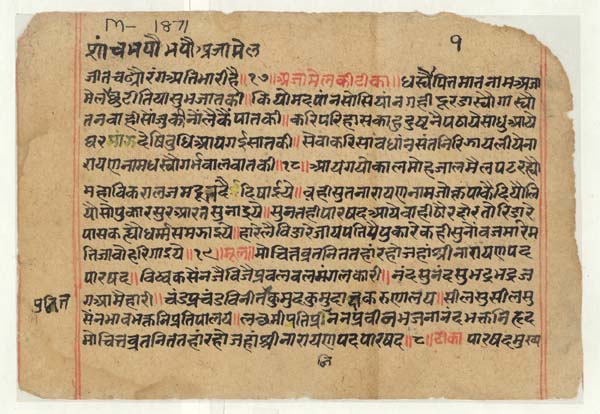 M- 1871
१
जातचढ्यौरंगअतिभारीहै॥१७॥अजामेलकीटीका॥धर्यौपितमातनामअजा
मेलछुटीतियासुभजातकी॥कियोमदपानसोसियानगहीदूरडार्योगार्योत
नवाहीसोजुकीनौलेकैपातकी॥करिपरिहासकाहुदुष्टनेपठायेसाधुआये
घरभागदेषिबुधिआयगईसातकी॥सेवाकरिसावधानसंतनिरिझायलीयेना
रायणनामधर्योगर्भवालवातकी॥१८॥आयगयोकालमोहजालमैलपटरह्यो
महाविकरालजमदूत दिषाईये॥वहीसुतनारायणनामजोकृपाकैदियोलि
योसोपुकारसुरआरतसुनाइये॥सुनतहीपारषदआयेवाहीठौरहारतोरिडार
पासकह्यौधर्मसमझाइये॥हारेलैविडारेजायपतिपैपुकारेकहीसुनोवजमारेम
तिजावोहरिगाइये॥१९॥मूल॥मोचितव्रतनिततहांरहोजहांश्रीनारायणपद
पारषद॥विष्वकसेनजैविजैप्रवलवलमंगलकारी॥नंदसुनंदसुभद्रभद्रज
गआमेहारी॥चंडप्रचंडविनीतकुमुदकुमुदाक्षकरुणालय॥सीलसुसीलसु
सेनभावभक्तनिप्रतिपालय॥लक्ष्मीपतिप्रीननप्रवीनभजनानंदभक्तनिहृद
मोचितव्रतनिततहांरहोजहांश्रीनारायणपदपारषद॥८॥टीका॥पारषदमुख्य